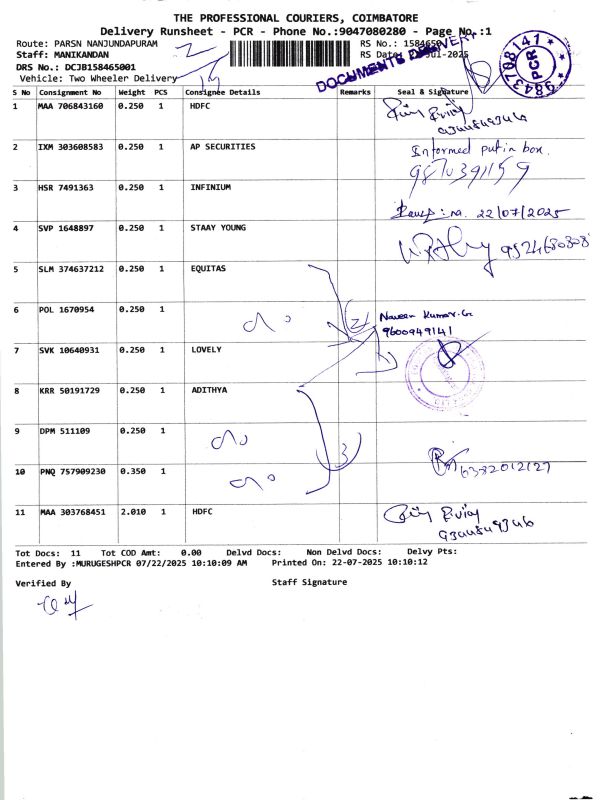 THE PROFESSIONAL COURIERS, COIMBATORE
Delivery Runsheet - PCR - Phone No.:9047080280 - Page No.:1
Route: PARSN NANJUNDAPURAM
RS No.: 1584650
Staff: MANIKANDAN
RS Date: 22-Jul-2025
DRS No.: DCJB158465001
Vehicle: Two Wheeler Delivery
DOCUMENTS DELIVERY
9843708141
PCR
S No Consignment No Weight PCS Consignee Details Remarks Seal & Signature
1 MAA 706843160 0.250 1 HDFC
2 IXM 303608583 0.250 1 AP SECURITIES Informed put in box.
3 HSR 7491363 0.250 1 INFINIUM
22/07/2025
4 SVP 1648897 0.250 1 STAAY YOUNG
5 SLM 374637212 0.250 1 EQUITAS
6 POL 1670954 0.250 1 Naveen Kumar.G
9600949141
7 SVK 10640931 0.250 1 LOVELY
8 KRR 50191729 0.250 1 ADITHYA
9 DPM 511109 0.250 1
3
10 PNQ 757909230 0.350 1 6382012127
11 MAA 303768451 2.010 1 HDFC
Tot Docs: 11 Tot COD Amt: 0.00 Delvd Docs: Non Delvd Docs: Delvy Pts:
Entered By :MURUGESHPCR 07/22/2025 10:10:09 AM Printed On: 22-07-2025 10:10:12
Verified By Staff Signature